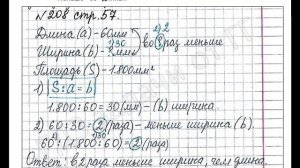 №208 стр.57.
Длина (a) - 60мм
Ширина (b) - ? мм во ? раз меньше
Площадь (S) - 1.800мм²
1) S:a=b
1.800:60=30(мм) - (b) ширина.
2) 60:30=2(раза) - меньше ширина (b).
60:(1.800:60)=2(раза)
Ответ: в 2 раза меньше ширина, чем длина.